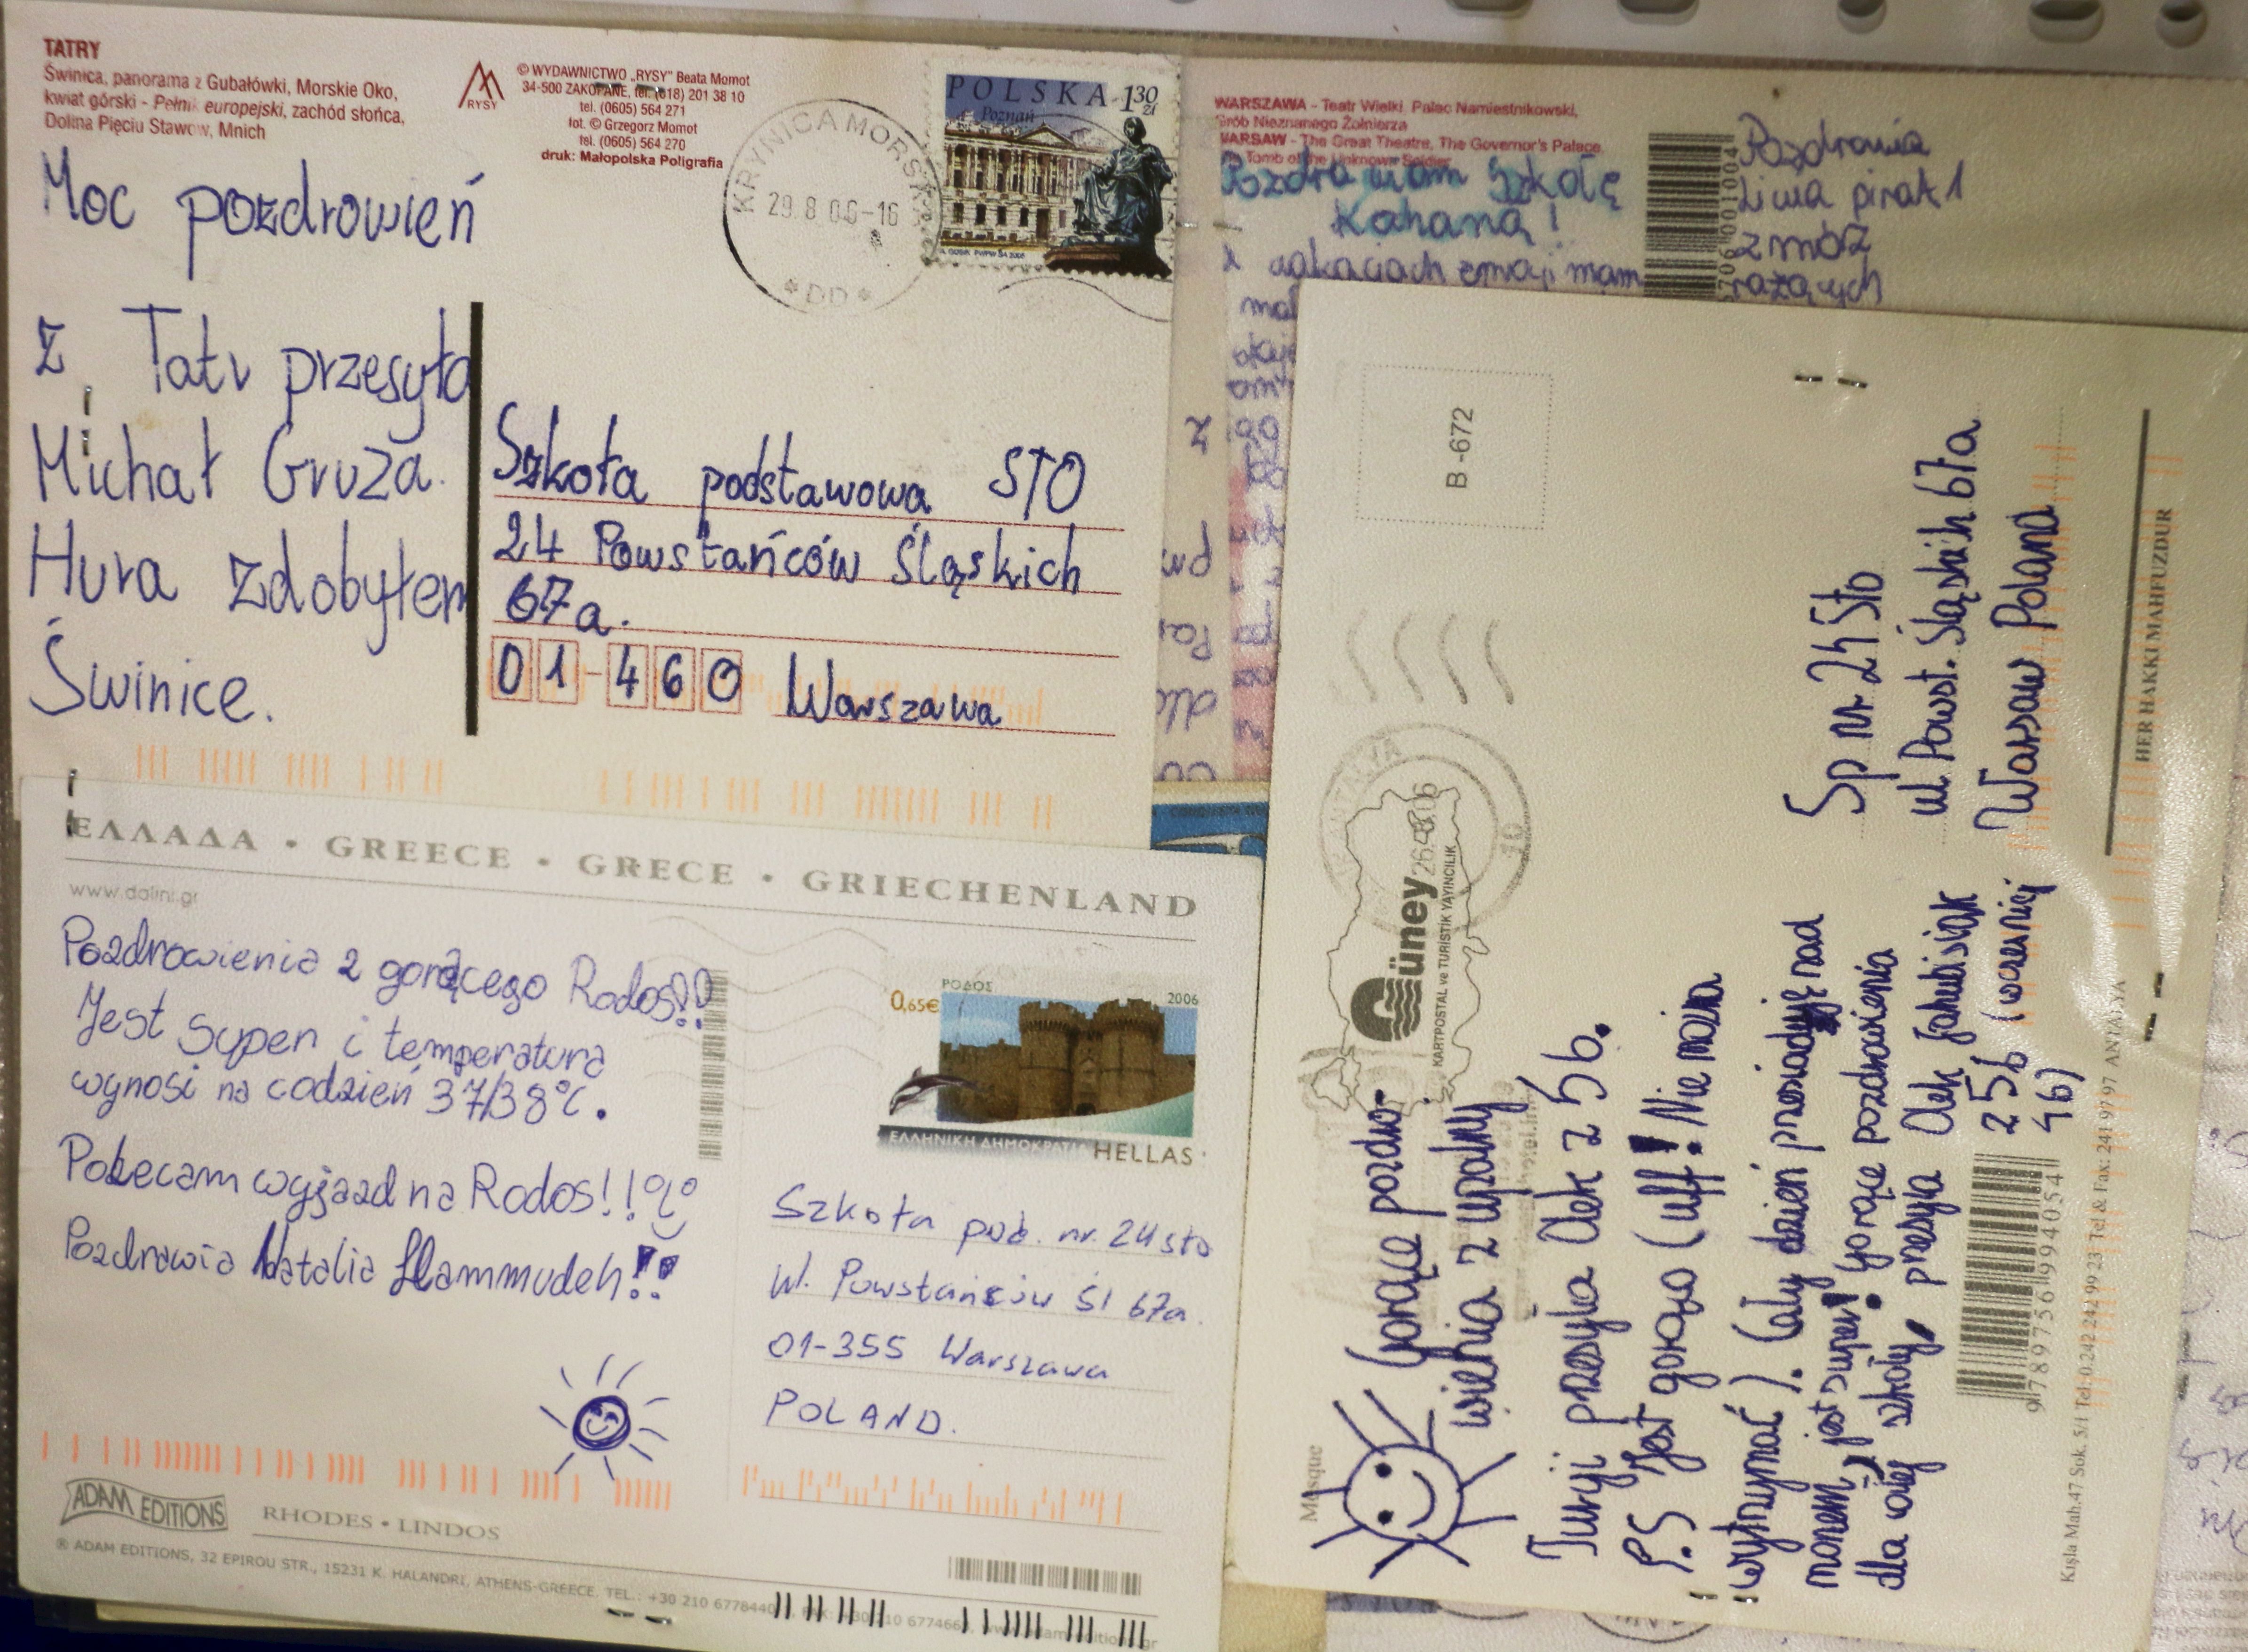 TATRY
Świnica, panorama z Gubałówki, Morskie Oko,
kwiat górski - Pełnik europejski, zachód słońca,
Dolina Pięciu Stawów, Mnich
RYSY
© WYDAWNICTWO „RYSY" Beata Momot
34-500 ZAKOPANE, tel. (018) 201 38 10
tel. (0605) 564 271
fot. © Grzegorz Momot
tel. (0605) 564 270
druk: Małopolska Poligrafia
KRYNICA MORSK
29.8.06-16
*DD*
POLSKA 1,30 zł
Poznań
Moc pozdrowień
z Tatr przesyła
Michał Gruza.
Hura zdobyłem
Świnice.
Szkoła podstawowa STO
24 Powstańców Śląskich
67a.
01-460 Warszawa
WARSZAWA - Teatr Wielki, Pałac Namiestnikowski,
Grób Nieznanego Żołnierza
WARSAW - The Great Theatre, The Governor's Palace,
The Tomb of the Unknown Soldier
Pozdrawiam Szkołę
Kohaną!
mam
Pozdrowia
pirat
z mórz
706 001004
ΕΛΛΑΔΑ • GREECE • GRECE • GRIECHENLAND
www.dalini.gr
Pozdrowienia z gorącego Rodos!!
Jest super i temperatura
wynosi na codzień 37/38°C.
Polecam wyjazd na Rodos!!
Pozdrawia Natalia Hammudeh!!
ΡΟΔΟΣ 2006
0,65€
ΕΛΛΗΝΙΚΗ ΔΗΜΟΚΡΑΤΙΑ HELLAS
Szkoła pod. nr. 24 sto
Ul. Powstańców Śl 67a.
01-355 Warszawa
POLAND.
ADAM EDITIONS
RHODES • LINDOS
® ADAM EDITIONS, 32 EPIROU STR., 15231 K. HALANDRI, ATHENS-GREECE. TEL.: +30 210 6778440
Mosque
Gorące pozdro-
wienia z upalny
Turcji przesyła Olek z 5b.
P.S Jest gorąco (uff! Nie można
wytrzymać). Cały dzień przesiaduję nad
morzem, jest super! Gorące pozdrowienia
dla całej szkoły, przesyła Olek Jakubisiak
z 5b (wcześniej
4b)
B -672
ANTALYA
26.08.06
16
Güney
KARTPOSTAL ve TURİSTİK YAYINCILIK
Sp nr. 24 Sto
ul. Powst. Śląskich 67a
Warsaw Poland
HER HAKKI MAHFUZDUR
9 789756 994054
Kışla Mah.47 Sok. 5/1 Tel: 0.242 242 99 23 Tel & Fax: 241 97 97 ANTALYA